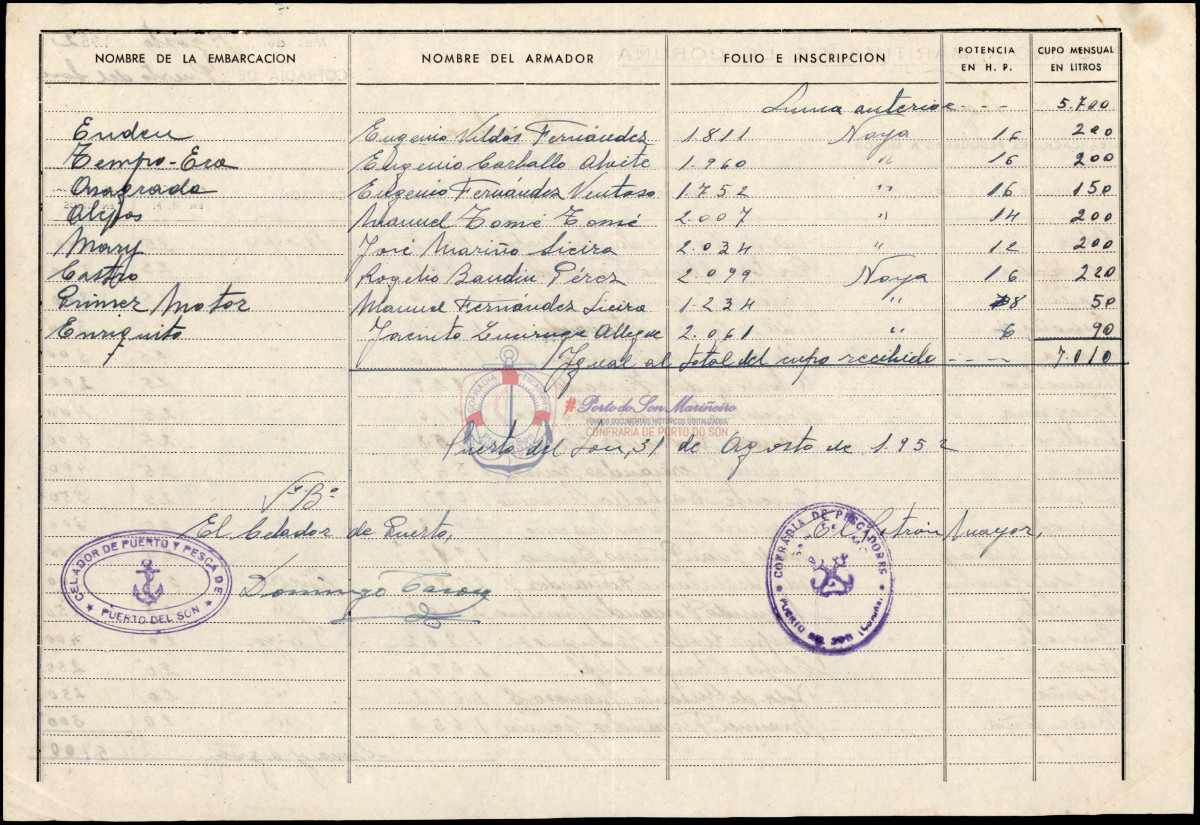 NOMBRE DE LA EMBARCACION NOMBRE DEL ARMADOR FOLIO E INSCRIPCION POTENCIA EN H. P. CUPO MENSUAL EN LITROS
Suma anterior - - - 5.700
Enden Eugenio Vildós Fernández 1.811 Noya 16 200
Tempo-Era Eugenio Carballo Alvite 1.960 " 16 200
Anagrada Eugenio Fernández Ventoso 1.752 " 16 150
Manuel Tomé Tomé 2.007 " 14 200
Mary José Mariño Sieira 2.034 " 12 200
Castro Rogelio Baudin Pérez 2.099 Noya 16 220
Primer Motor Manuel Fernández Sieira 1.234 " 8 50
Enriquito Jacinto 2.061 " 6 90
Igual al total del cupo recibido - - - 7.010
#Porto do Son Mariñeiro
FONDOS DOCUMENTAIS HISTÓRICOS DIXITALIZADOS
CONFRARÍA DE PORTO DO SON
Puerto del Son, 31 de Agosto de 1.952
Vº Bº
El Celador de Puerto, El Patrón Mayor,
CELADOR DE PUERTO Y PESCA DE
PUERTO DEL SON
Domingo
COFRADIA DE PESCADORES
PUERTO DEL SON